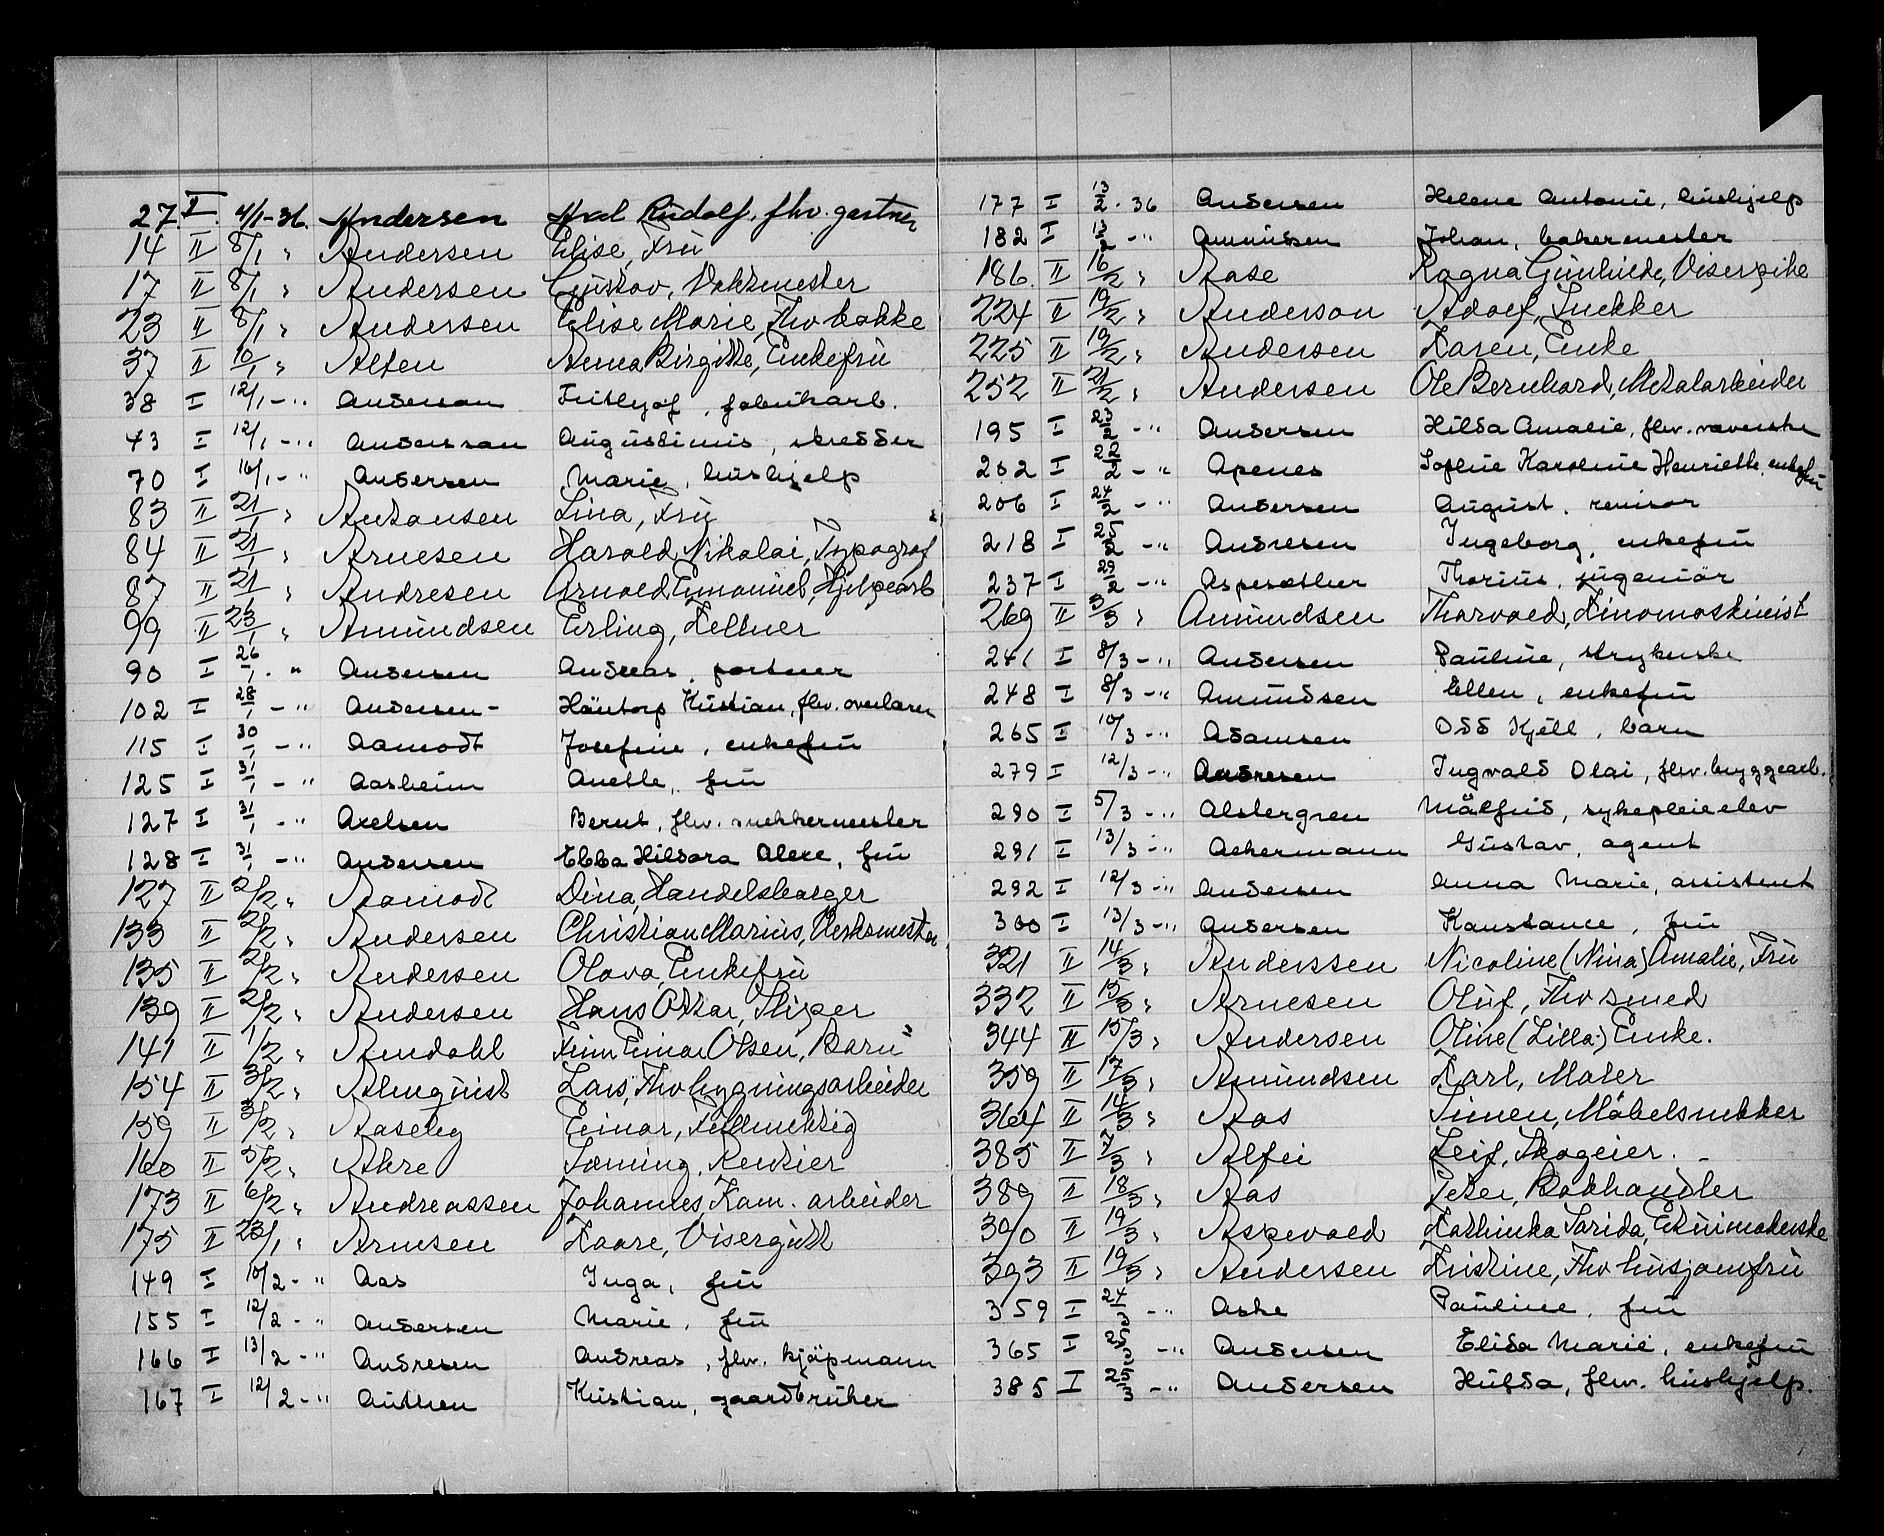 27 II 4/1-36. Andersen Axel Rudolf, fhv. gartner
14 II 8/1 " Andersen Elise, Fru
17 II 8/1 " Andersen Gustav, Vaktmester
23 II 8/1 " Andersen Elise Marie, Fhv kokke
37 II 10/1 " Alfen Anna Birgitte, Enkefru
38 I 12/1 - " Anderson Frithjof, fabrikarb.
43 I 12/1 - " Andersson Augustinus, skredder
70 I 16/1 - " Andersen Marie, hushjelp
83 II 21/1 " Antonsen Lina, Fru
84 II 21/1 " Arnesen Harald Nikolai, Typograf
87 II 21/1 " Andresen Arnold Emanuel, Hjelpearb
99 II 23/1 " Amundsen Erling, Kellner
90 I 26/1 - " Andersen Andreas, portner
102 I 28/1 - " Andersen- Häntorp Kristian, fhv. overlærer
115 I 30/1 - " Aamodt Josefine, enkefru
125 I 31/1 - " Aasheim Anette, fru
127 I 31/1 - " Axelsen Bernt, fhv. snekkermester
128 I 31/1 - " Andersen Ebba Hildora Alexe, fru
127 II 2/2 " Aamodt Dina, Handelsborger
133 II 2/2 " Andersen Christian Marius, Verksmester
135 II 2/2 " Andersen Olava, Enkefru
139 II 2/2 " Andersen Hans Oskar, Sliper
141 II 1/2 " Amdahl Finn Einar Olsen, "Barn"
154 II 3/2 " Almquist Lars, Fhv bygningsarbeider
159 II 3/2 " Aaseby Einar, Fullmektig
160 II 5/2 " Akre Sæming, Rentier
173 II 6/2 " Andreassen Johannes, Kom. arbeider
175 II 23/1 " Arnesen Kaare, Visergutt
149 I 10/2 - " Aas Inga, fru
155 I 12/2 - " Andersen Marie, fru
166 I 13/2 - " Andresen Andreas, fhv. kjøpmann
167 I 12/2 - " Authen Kristian, gaardbruker
177 I 13/2 - 36 Andersen Helene Antonie, hushjelp
182 I 13/2 - " Amundsen Johan, bakermester
186 II 16/2 " Aase Ragna Gunhilde, Viserpike
224 II 19/2 " Anderson Adolf, Snekker
225 II 19/2 " Andersen Karen, Enke
252 II 21/2 " Andersen Ole Bernhard, Metalarbeider
195 I 23/2 - " Andersen Hilda Amalie, fhv. væverske
202 I 22/2 - " Apenes Sofie Karoline Henriette, enkefru
206 I 24/2 - " Andersen August, revisor
218 I 25/2 - " Andresen Ingeborg, enkefru
237 I 29/2 - " Aspesæther Thorius, ingeniør
269 II 3/3 " Amundsen Thorvald, Kinomaskinist
241 I 8/3 - " Andersen Pauline, strykerske
248 I 8/3 - " Amundsen Ellen, enkefru
265 I 10/3 - " Adamsen Odd Kjell, barn
279 I 12/3 - " Andresen Ingvald Olai, fhv. bryggearb.
290 I 5/3 - " Alsbergren Målfrid, sykepleieelev
291 I 13/3 - " Ackermann Gustav, agent
292 I 12/3 - " Andersen Anna Marie, assistent
300 I 13/3 - " Andersen Konstance, fru
321 II 14/3 " Anderssen Nicoline (Nina) Amalie, Fru
332 II 15/3 " Arnesen Oluf, Fhv smed
344 II 15/3 " Andersen Oline (Lilla:) Enke.
359 II 17/3 " Asmundsen Karl, Maler
364 II 14/3 " Aas Simen, Møbelsnekker
385 II 7/3 " Alfei Leif, Skogeier.
389 II 18/3 " Aas Peter, Bokhandler
390 II 19/3 " Aspevold Kathinka Sarida, Etuimakerske
393 II 19/3 " Andersen Kristine, Fhv husjomfru
359 I 24/3 - " Aske Pauline, fru
365 I 25/3 - " Andersen Elida Marie, enkefru
385 I 25/3 - " Andersen Hulda, fhv. hushjelp.